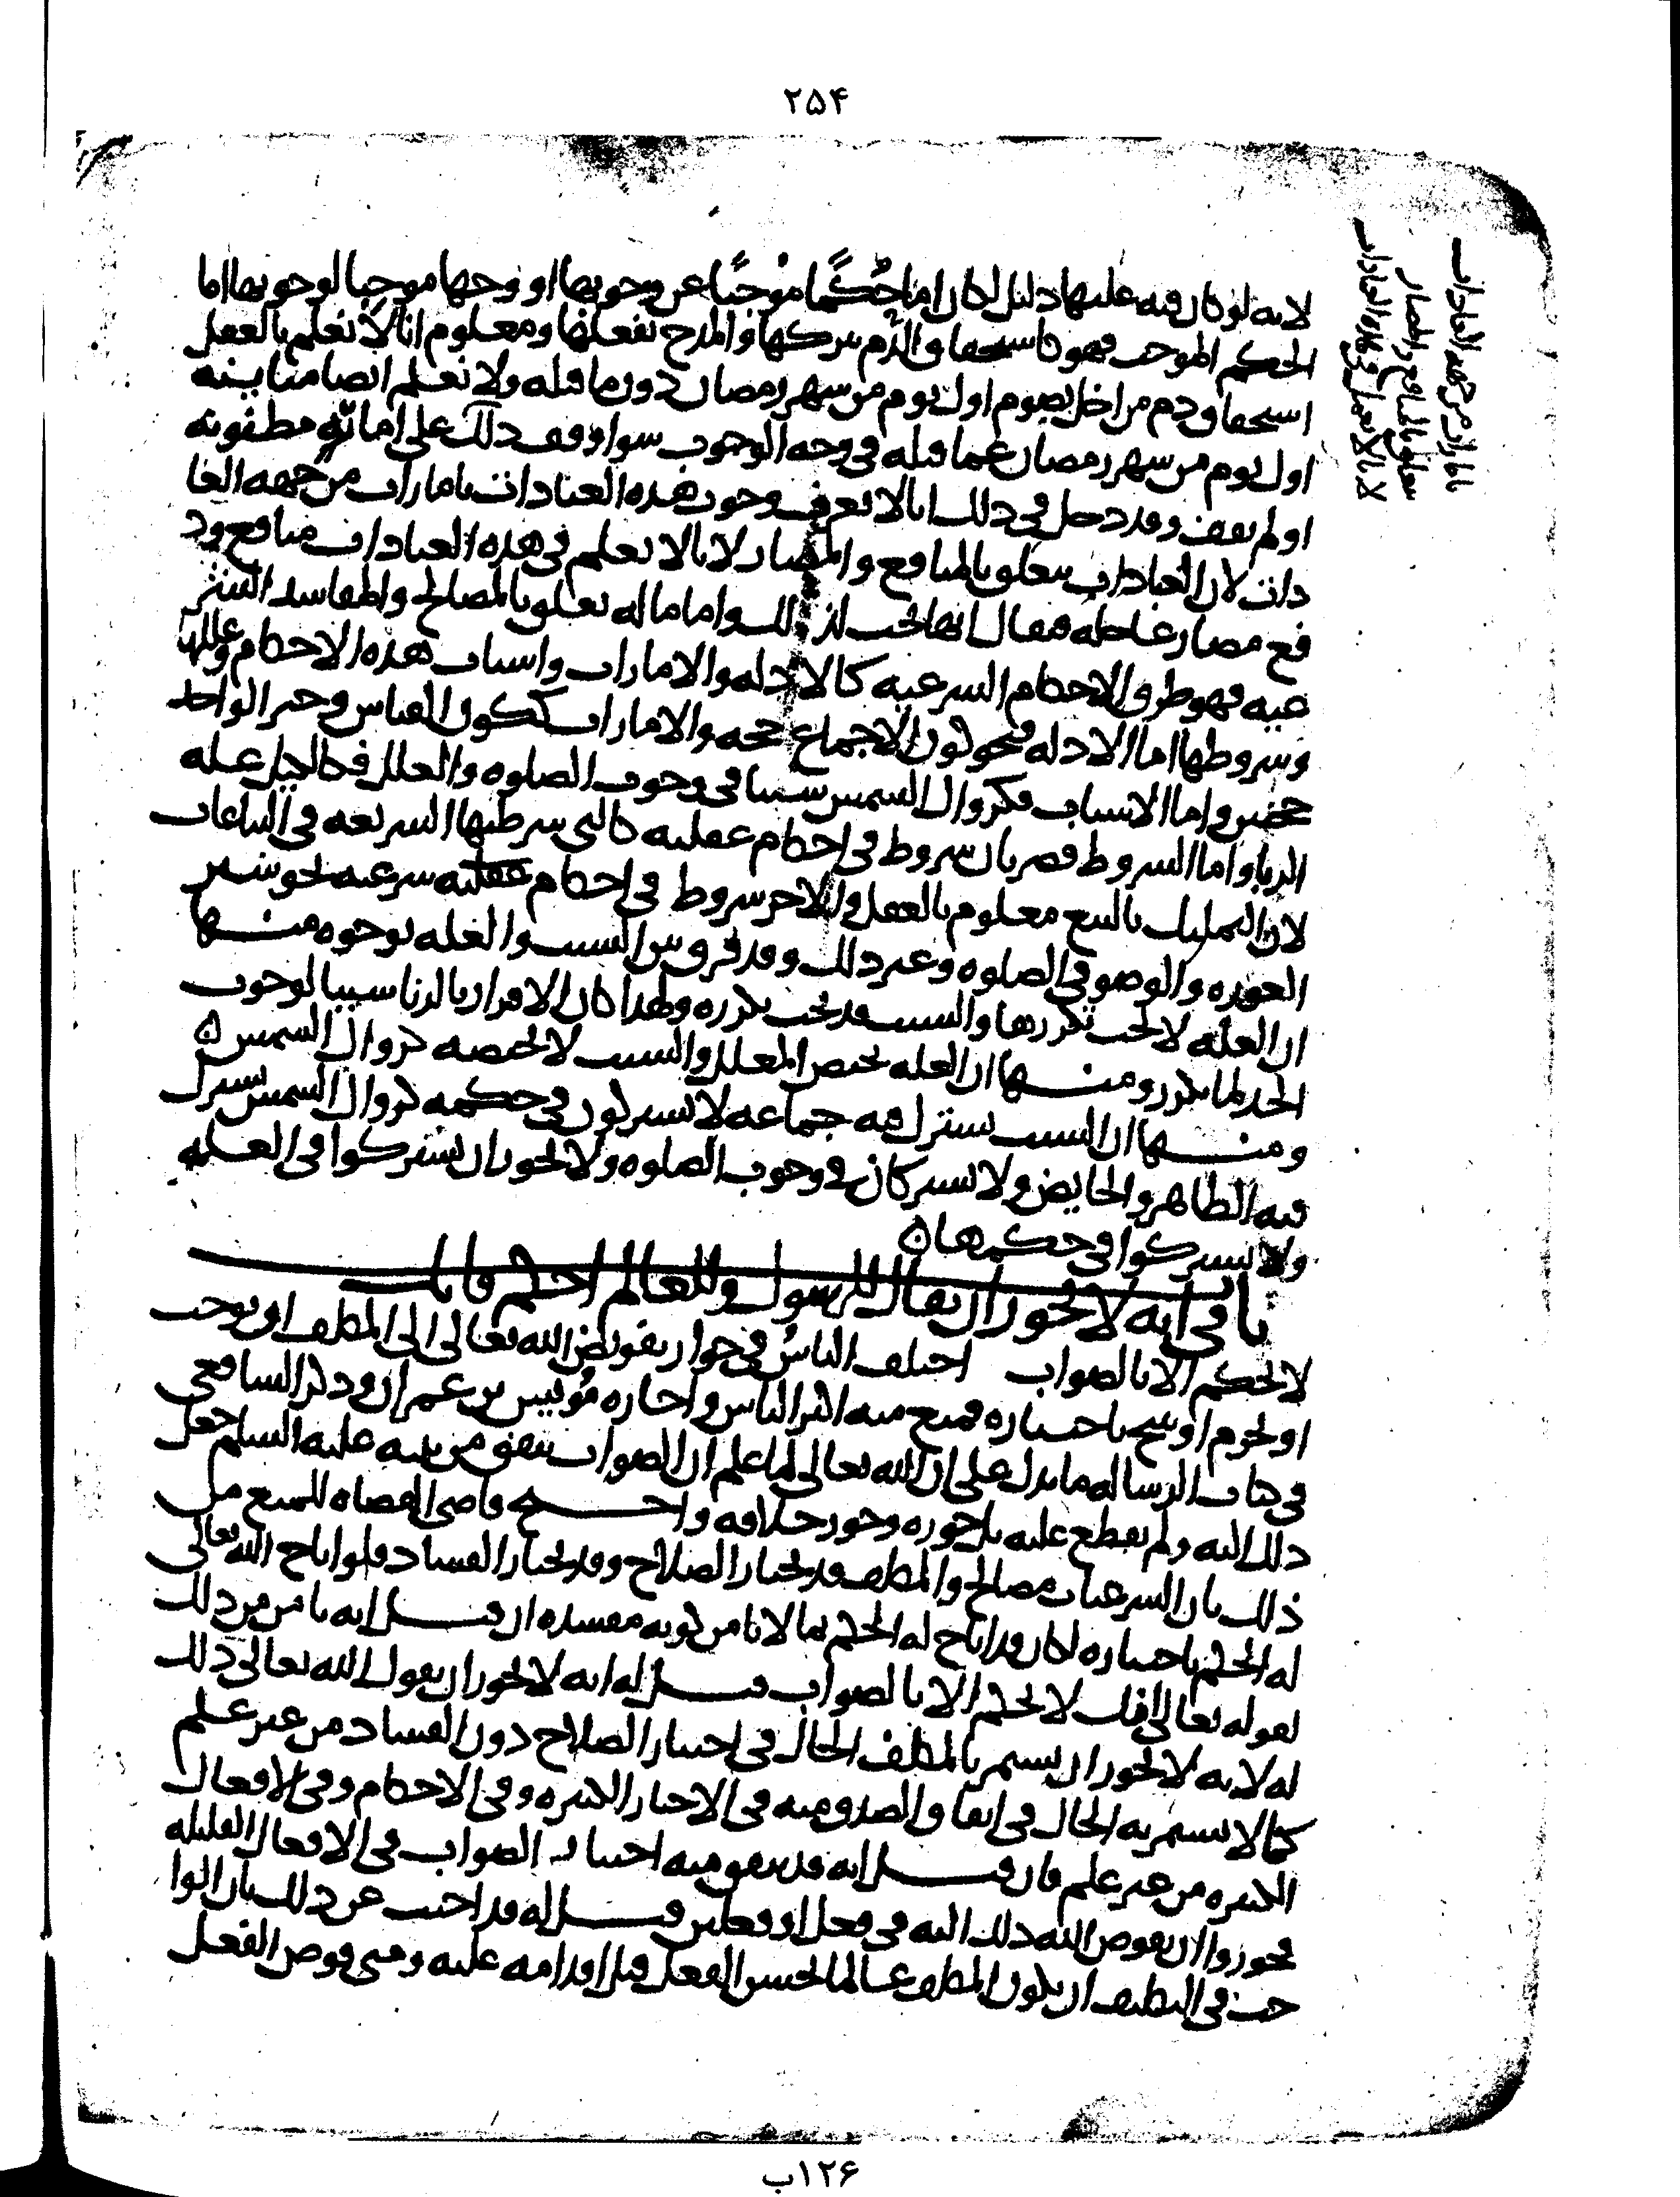 ٢٥۴
لانه لو كان فيه عليها دليل لكان اما حكما موجبا عن وجوبها او وجها موجبا لوجوبها اما
الحكم الموجب فهو كاستحقاق الذم بتركها والمدح بفعلها ومعلوم انا لا نعلم بالعقل
استحقاق ذم من اخل بصوم اول يوم من شهر رمضان دون ما قبله ولا نعلم ايضا مباينة
اول يوم من شهر رمضان عما قبله في وجه الوجوب سوا وقف ذلك على امارة مظنونه
او لم يقف وقد دخل في ذلك انا لا نعرف وجوب هذه العبادات بامارات من جهه العا
دات لان العبادات تتعلق بالمنافع والمضار لانا لا نعلم في هذه العبادات منافع ود
فع مضار عاجله فيقال انها تجب لذلك واما ما له تعلق بالمصالح والمفاسد الشر
عيه فهو طرق الاحكام الشرعيه كالادله والامارات واسباب هذه الاحكام وعللها
وشروطها اما الادله فنحو كون الاجماع حجه والامارات ككون القياس وخبر الواحد
حجتين واما الاسباب فكزوال الشمس سببا في وجوب الصلوه والعلل فكالكيل عله
الربا واما الشروط فضربان شروط في احكام عقليه كالتي شرطتها الشريعه في البياعات
لان التمليك بالبيع معلوم بالعقل والاخر شروط في احكام عقليه شرعيه نحو ستر
العوره والوضو في الصلوه وغير ذلك وقد فرق بين السبب والعله بوجوه منها
ان العله لا يجب تكررها والسبب قد يجب تكرره ولهذا كان الاقرار بالزنا سببا لوجوب
الحد لما تكرر ومنها ان العله تختص المعلل والسبب لا يختصه كزوال الشمس ٥
ومنها ان السبب يشترك فيه جماعه لا يشتركون في حكمه كزوال الشمس يشترك
فيه الطاهر والحايض ولا يشتركان في وجوب الصلوه ولا يجوز ان يشتركوا في العله
ولا يشتركوا في حكمها ٥
باب في انه لا يجوز ان يقال للرسول وللعالم احكم فانك
لا تحكم الا بالصواب اختلف الناس في جواز تفويض الله تعالى الى المكلف ان يوجب
او يحرم او يبيح باختياره فمنع منه اكثر الناس واجازه مؤيس بن عمران وذكر الشافعي
في كتاب الرساله ما يدل على ان الله تعالى لما علم ان الصواب يتفق من نبيه عليه السلم جعل
ذلك اليه ولم يقطع عليه بل جوزه وجوز خلافه واحتج قاضي القضاه للمنع من
ذلك بان الشرعيات مصالح والمكلف قد يختار الصلاح وقد يختار الفساد فلو اباح الله تعالى
له الحكم باختياره لكان قد اباح له الحكم بما لا نامن كونه مفسده ان قيل انه يامن من ذلك
لقوله تعالى انك لا تحكم الا بالصواب قيل له انه لا يجوز ان يقول الله تعالى ذلك
له لانه لا يجوز ان يستمر بالمكلف الحال في اختيار الصلاح دون الفساد من غير علم
كما لا يستمر به الحال في اتفاق الصدق منه في الاخبار الكثيره وفي الاحكام وفي الافعال
الكثيره من غير علم فان قيل انه قد يتفق منه اختيار الصواب في الافعال القليله
فجوزوا ان يفوض الله ذلك اليه في فعل او فعلين قيل له قد اجيب عن ذلك بان الوا
جب في التكليف ان يكون المكلف عالما بحسن الفعل قبل اقدامه عليه ومتى فوض الفعل
بامارات من جهه العادات
تتعلق بالمنافع والمضار
١٢۶ب